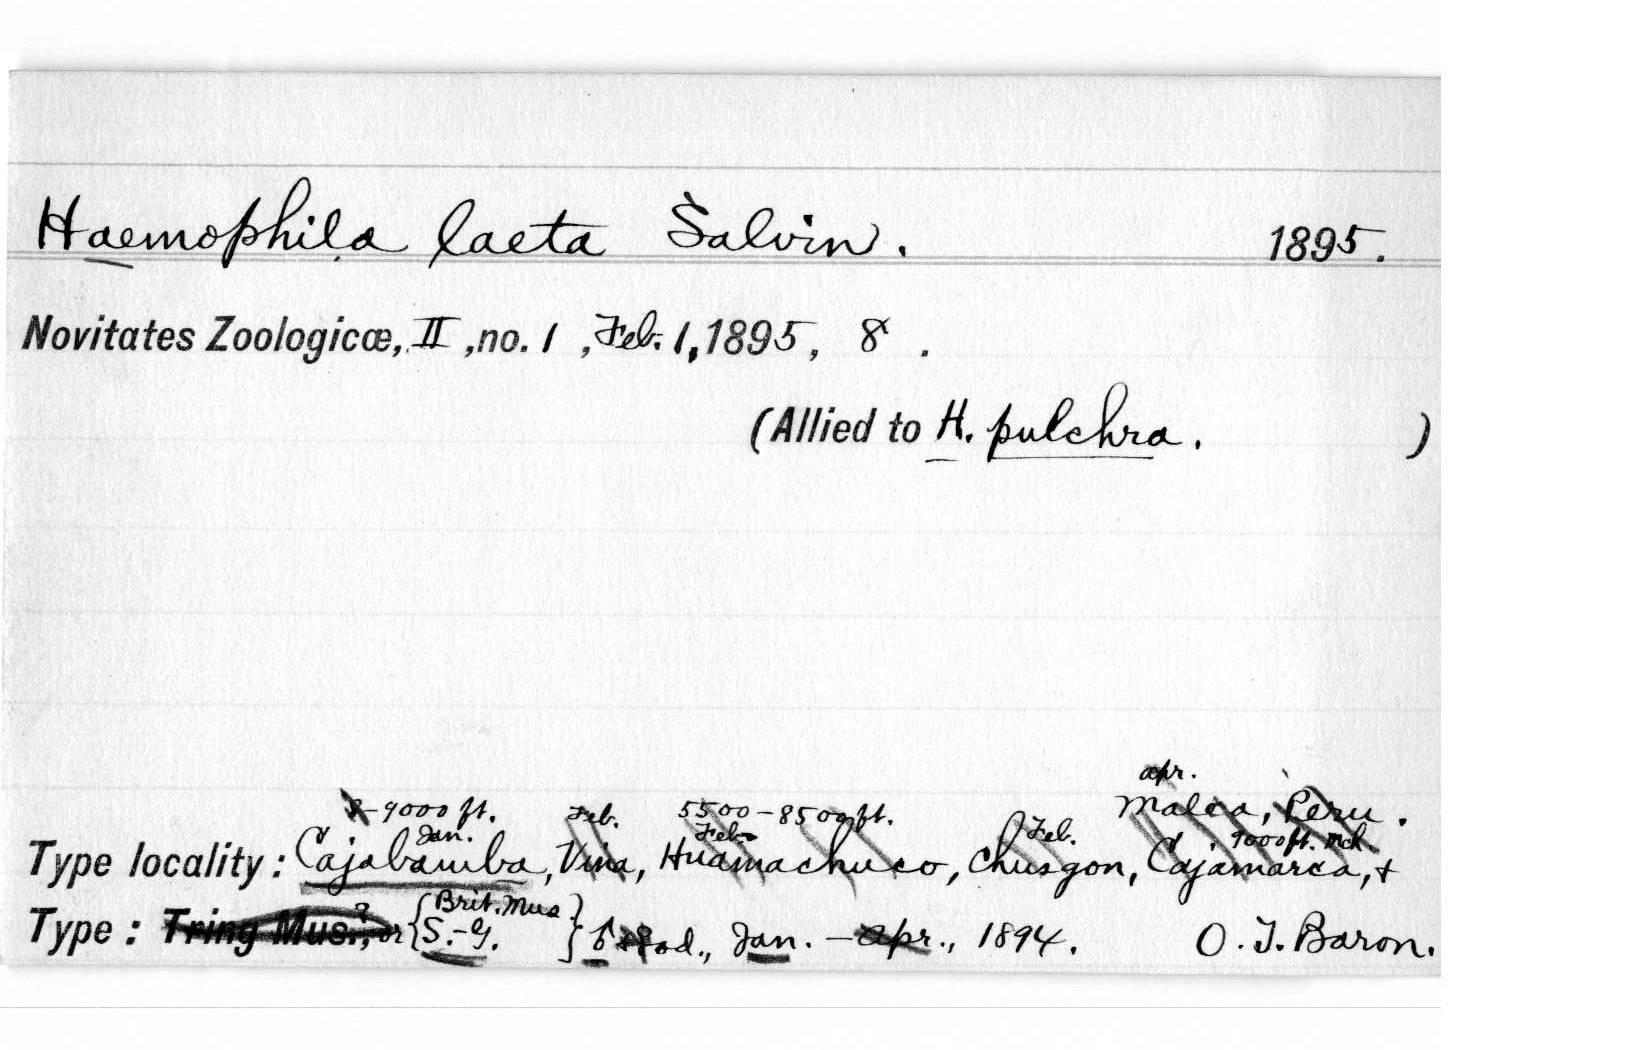 Haemophila laeta Salvin. 1895.
Novitates Zoologicæ, II, no. 1, Feb. 1, 1895, 8.
(Allied to H. pulchra. )
apr.
8-9000 ft. Feb. 5500-8500 ft. Malca, Peru.
Jan. Feb. Feb. 9000 ft. Mch.
Type locality: Cajabamba, Viña, Huamachuco, Chusgon, Cajamarca, +
Brit. Mus
Type: Tring Mus.?, or {S.-G.} ad., Jan. - apr., 1894. O. T. Baron.